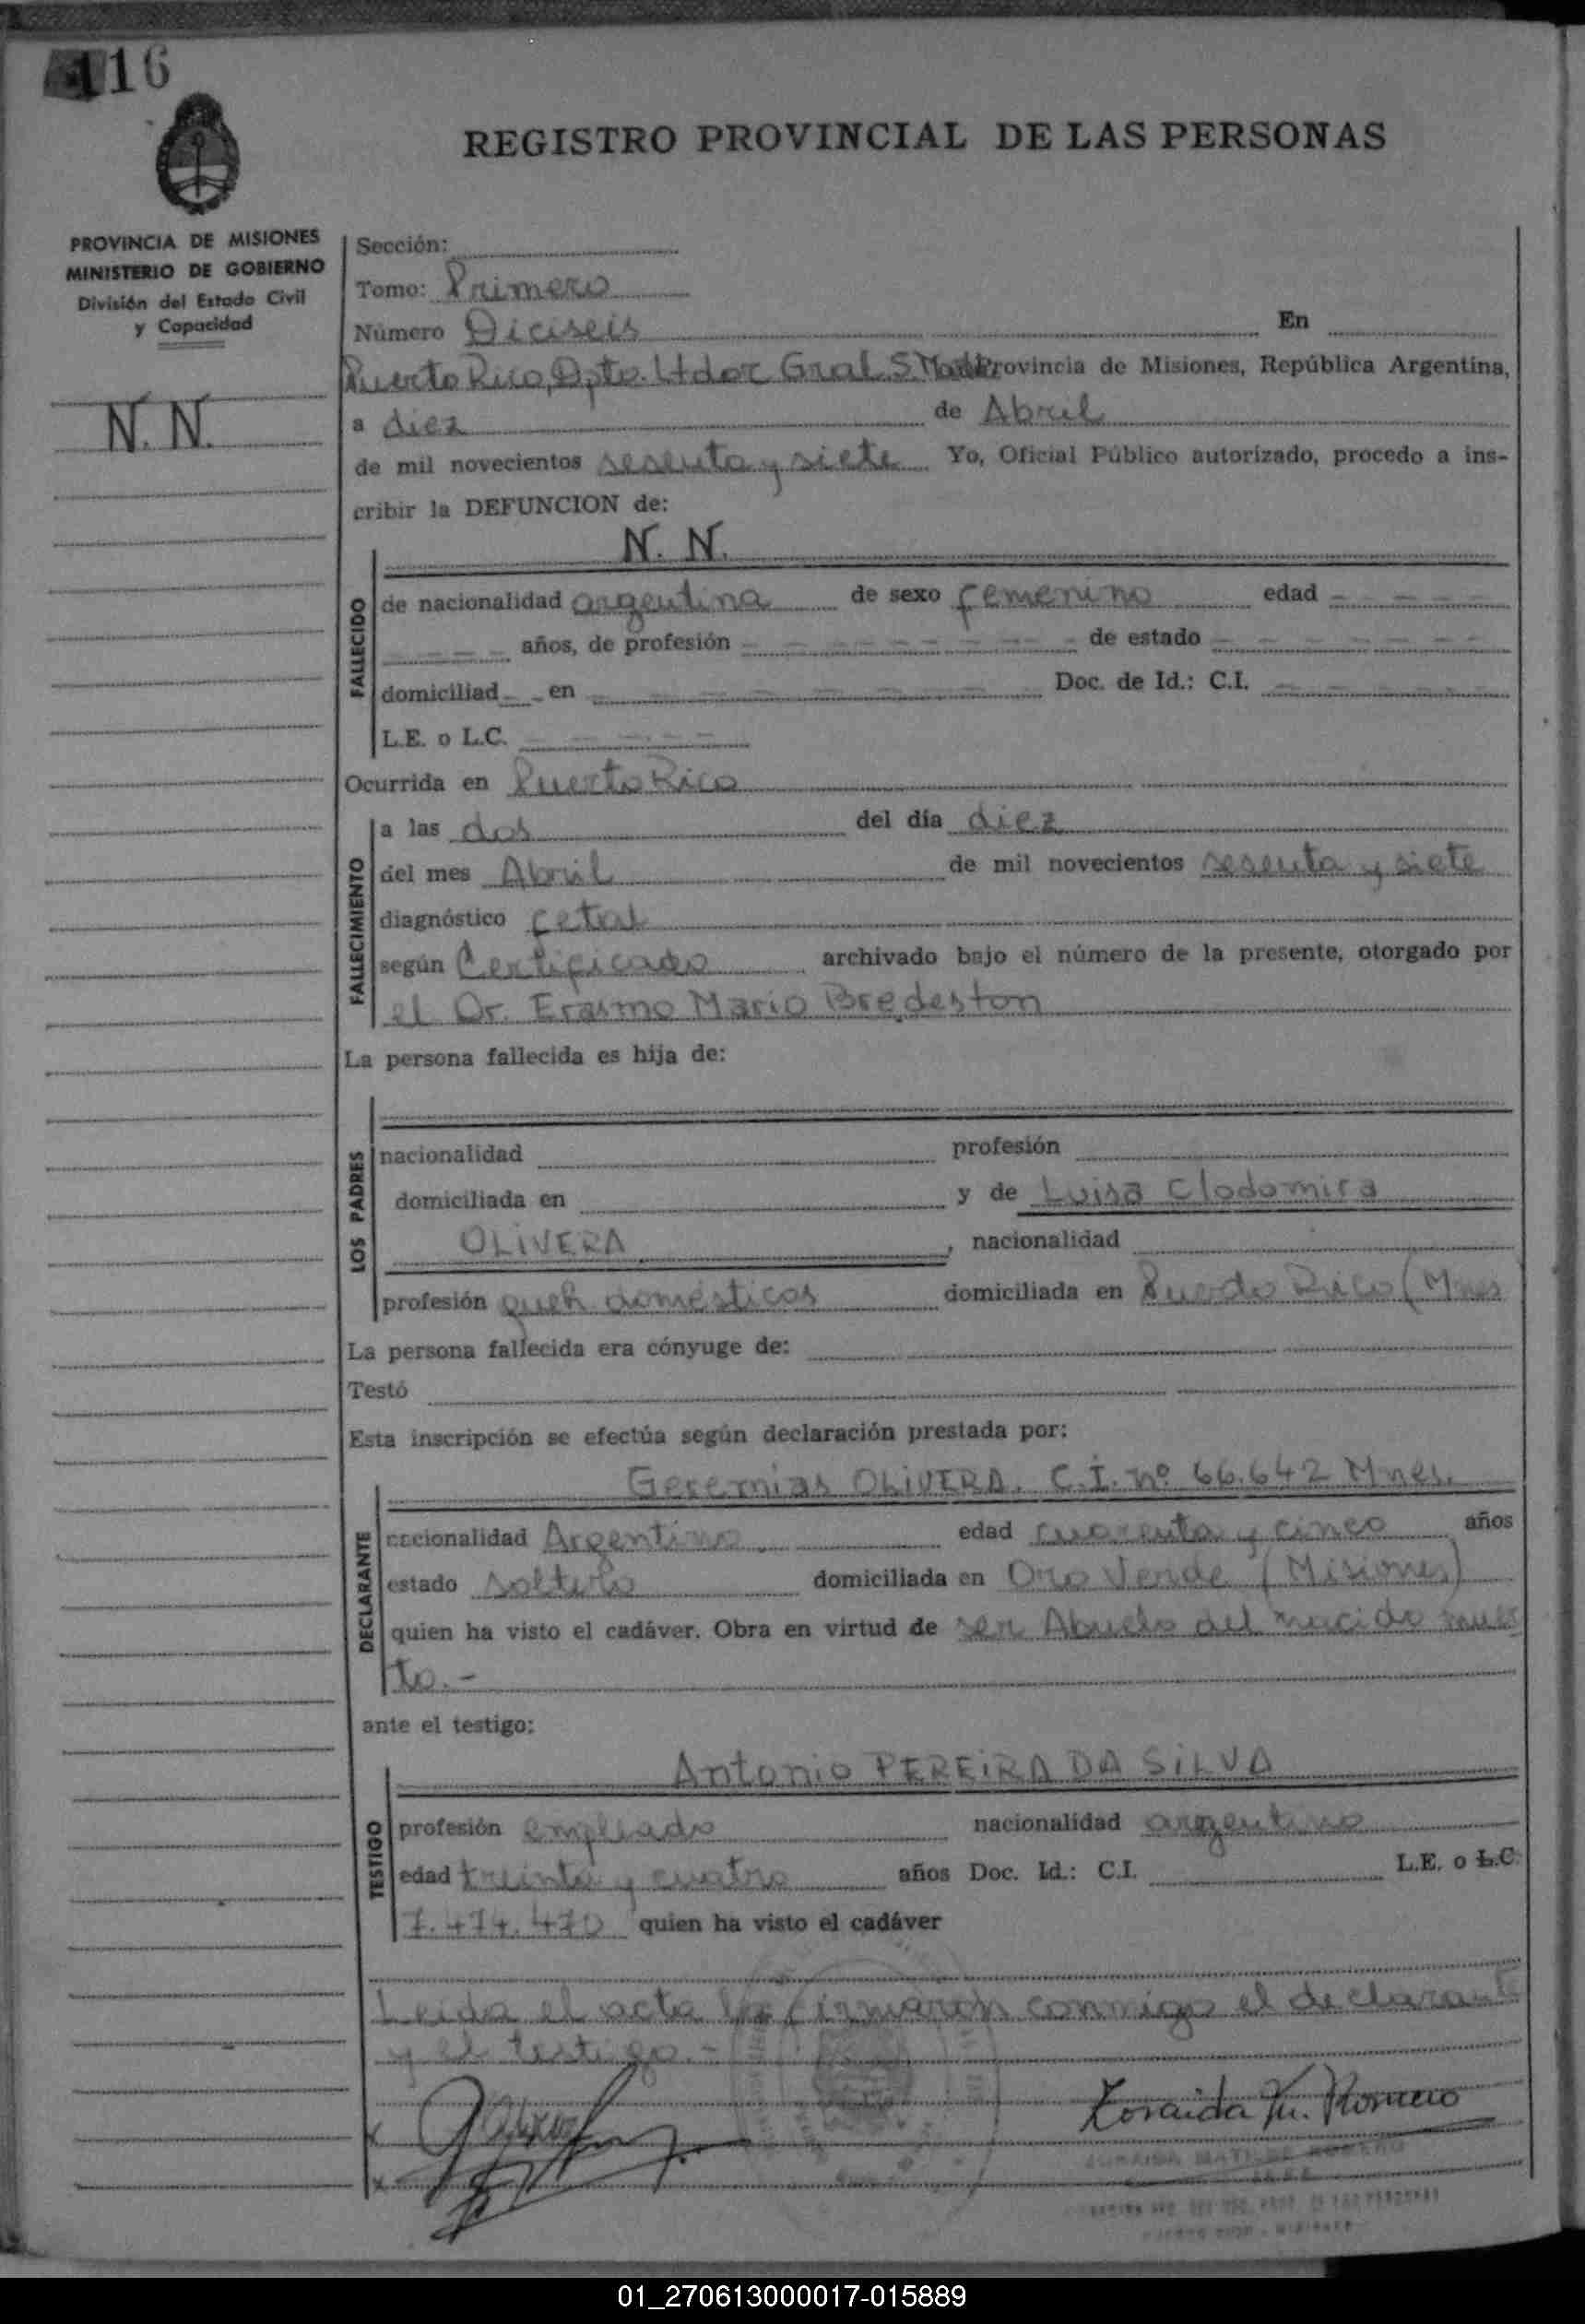 116
REGISTRO PROVINCIAL DE LAS PERSONAS
PROVINCIA DE MISIONES
MINISTERIO DE GOBIERNO
División del Estado Civil
y Capacidad
N. N.
Sección:
Tomo: Primero
Número Diciseis En
Puerto Rico, Dpto. Ltdor Gral S. Martin Provincia de Misiones, República Argentina,
a diez de Abril
de mil novecientos sesenta y siete Yo, Oficial Público autorizado, procedo a ins-
cribir la DEFUNCION de:
N. N.
FALLECIDO
de nacionalidad argentina de sexo femenino edad - - - -
- - - - años, de profesión - - - - - - - - de estado - - - - - -
domiciliad - en - - - - - - - - Doc. de Id.: C.I. - - - - -
L.E. o L.C. - - - - -
Ocurrida en Puerto Rico
FALLECIMIENTO
a las dos del día diez
del mes Abril de mil novecientos sesenta y siete
diagnóstico fetal
según Certificado archivado bajo el número de la presente, otorgado por
el Dr. Erasmo Mario Bredeston
La persona fallecida es hija de:
LOS PADRES
nacionalidad profesión
domiciliada en y de Luisa Clodomira
OLIVERA, nacionalidad
profesión queh domésticos domiciliada en Puerto Rico (Mnes
La persona fallecida era cónyuge de:
Testó
Esta inscripción se efectúa según declaración prestada por:
Geremias OLIVERA. C.I. nº 66.642 Mnes.
DECLARANTE
nacionalidad Argentino edad cuarenta y cinco años
estado soltero domiciliada en Oro Verde (Misiones)
quien ha visto el cadáver. Obra en virtud de ser Abuelo del nacido muer
to.-
ante el testigo:
Antonio PEREIRA DA SILVA
TESTIGO
profesión empleado nacionalidad argentino
edad treinta y cuatro años Doc. Id.: C.I. L.E. o L.C.
7.474.470 quien ha visto el cadáver
Leida el acta la firmaron conmigo el declarante
y el testigo.-
Zoraida M. Romero
ZORAIDA MATILDE ROMERO
01_270613000017-015889